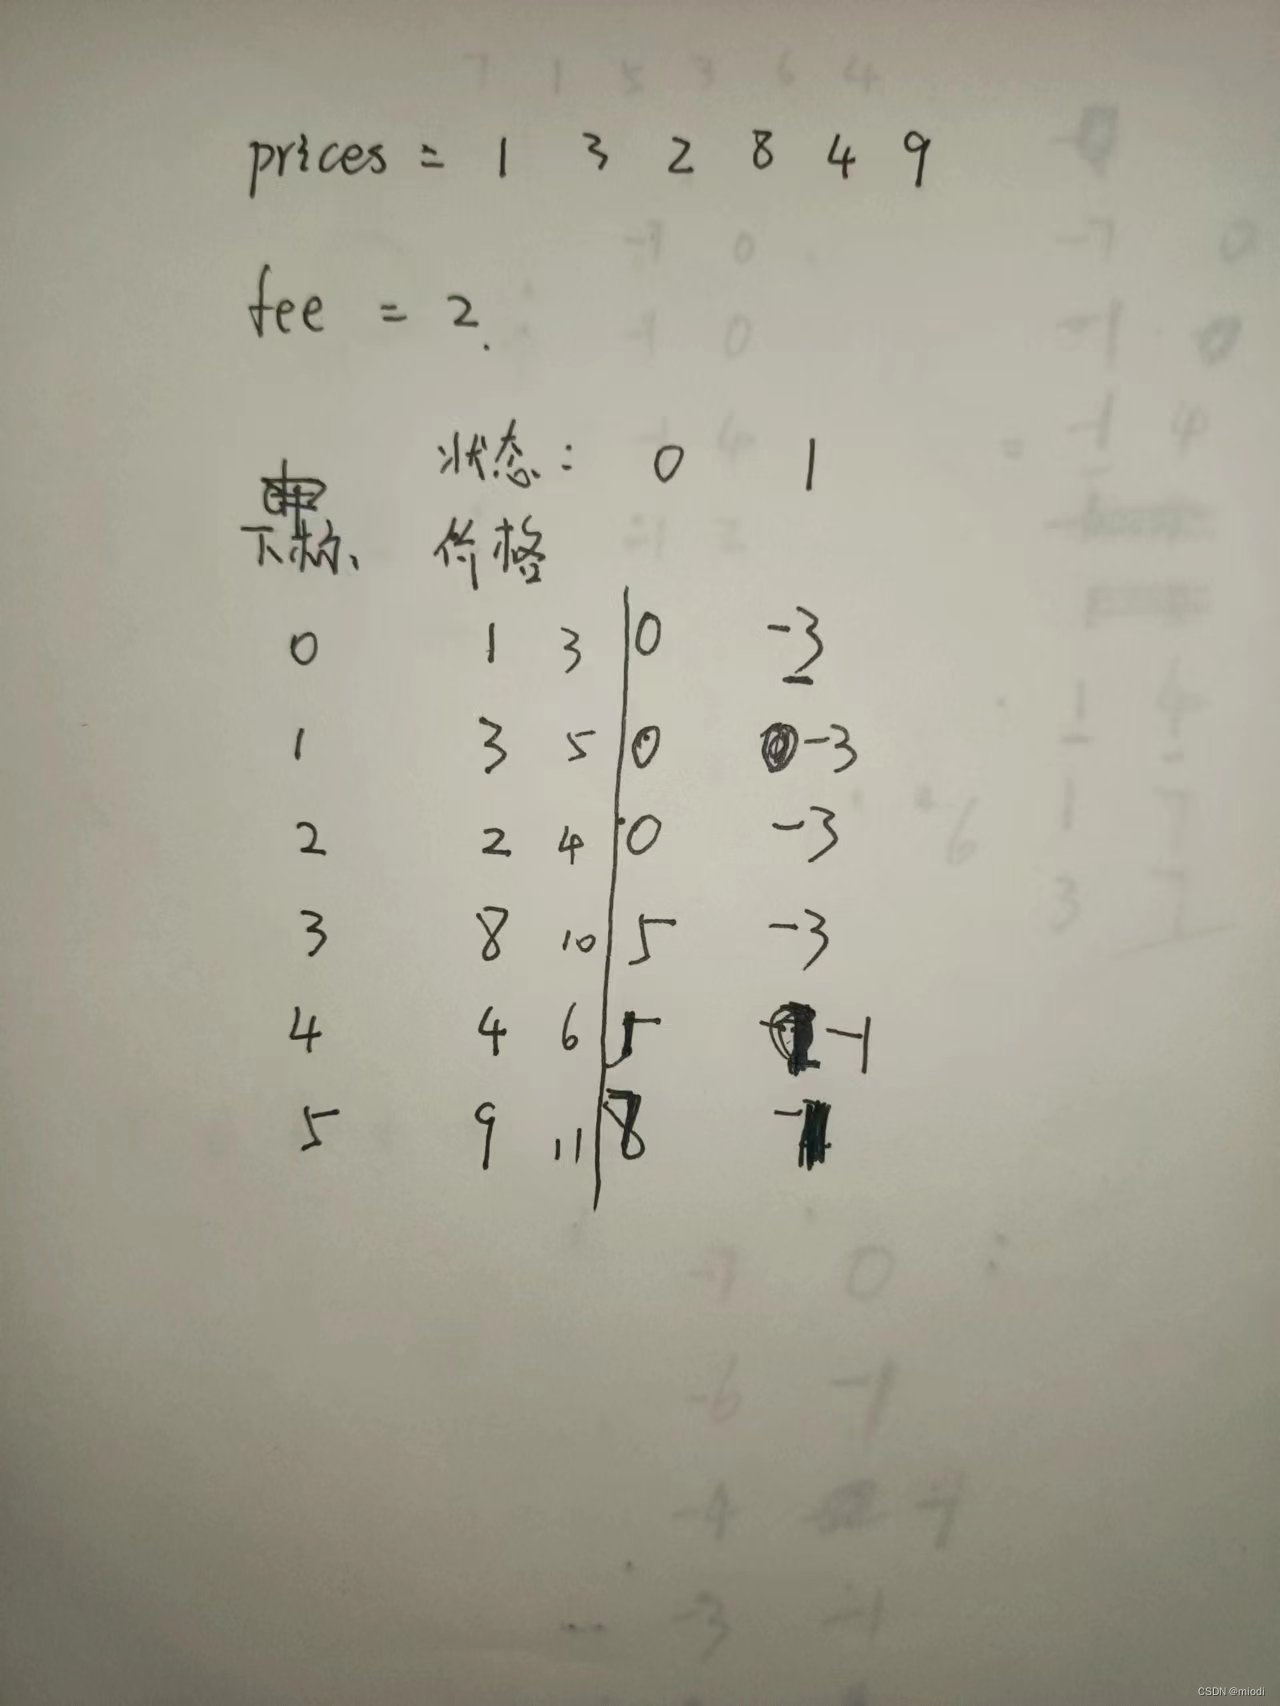 prices = 1 3 2 8 4 9
fee = 2.
状态: 0 1
下标、 价格
0 1 3 0 -3
1 3 5 0 -3
2 2 4 0 -3
3 8 10 5 -3
4 4 6 5 -1
5 9 11 8 -1
CSDN @miodi